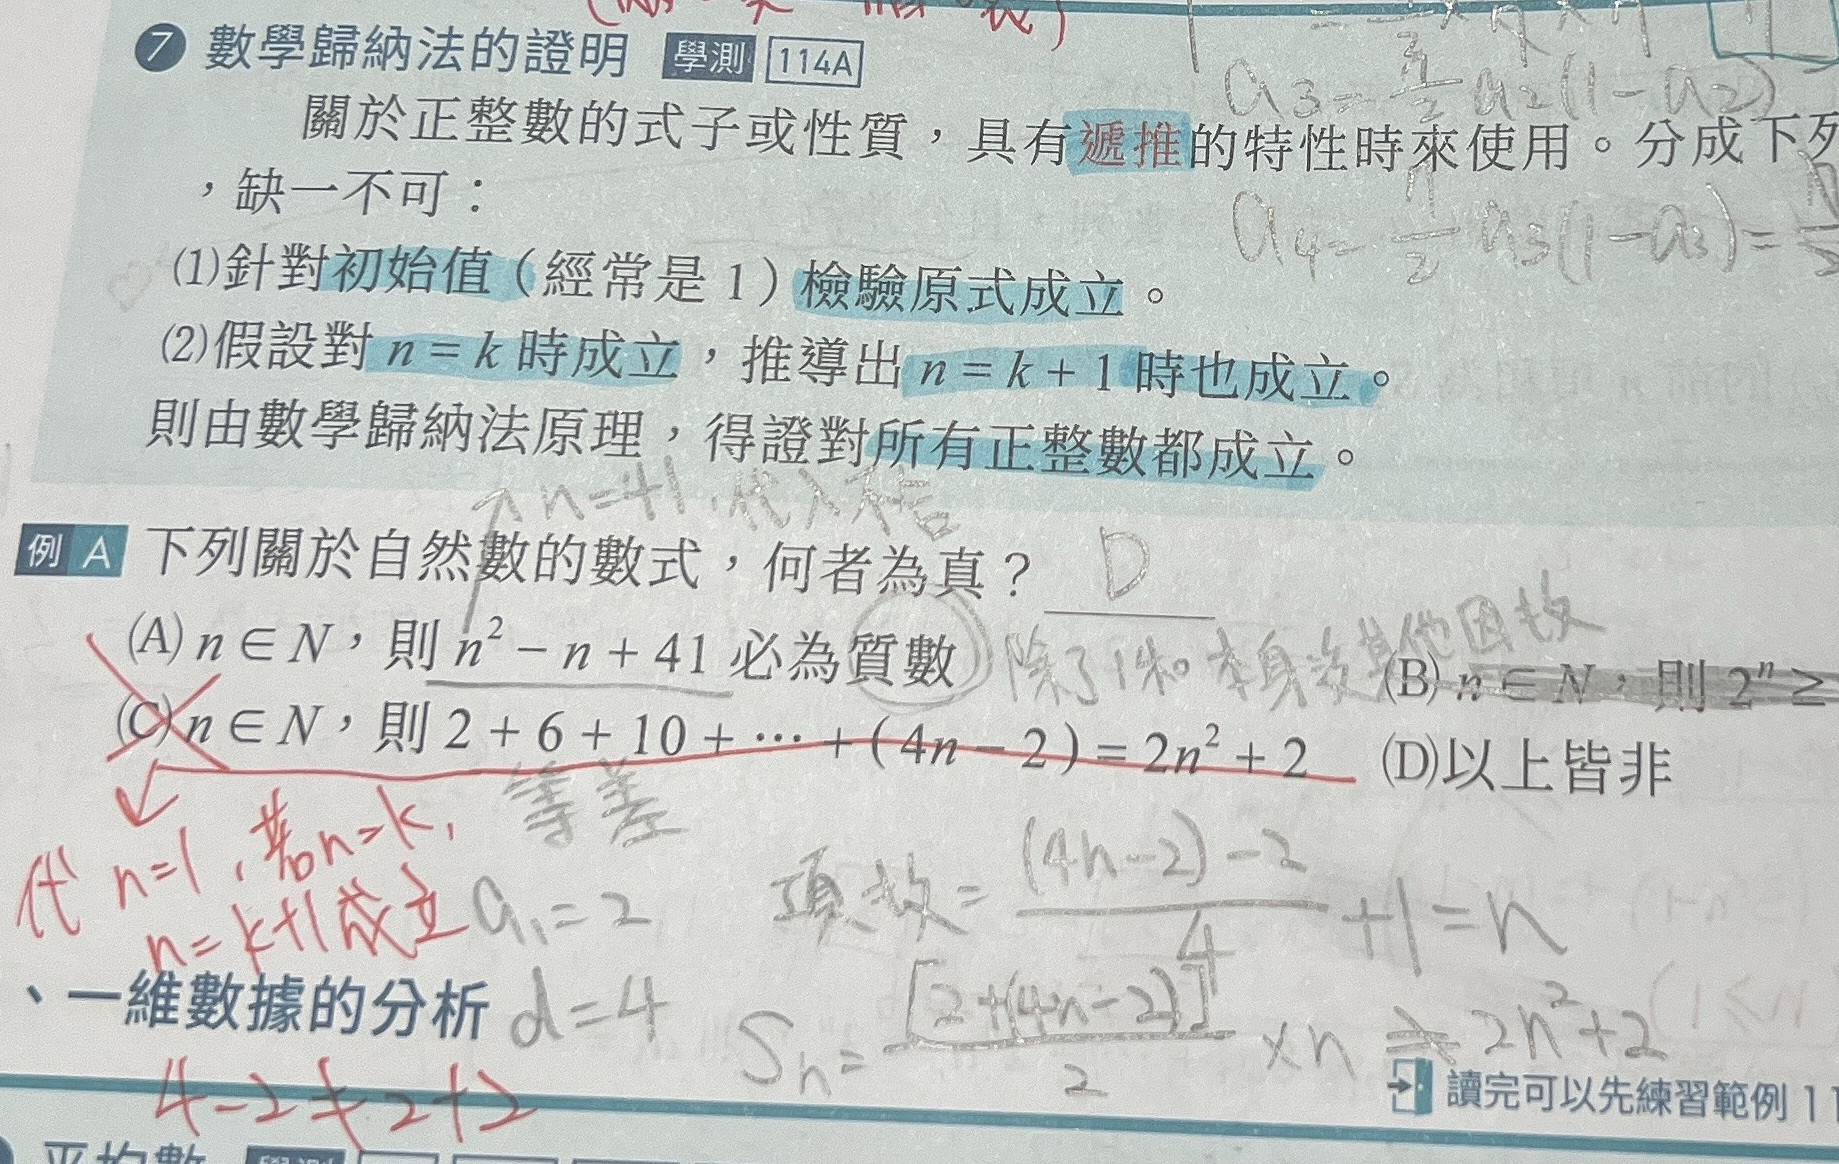 7 數學歸納法的證明 學測 114A
關於正整數的式子或性質，具有遞推的特性時來使用。分成下列
，缺一不可：
(1)針對初始值（經常是 1）檢驗原式成立。
(2)假設對 n = k 時成立，推導出 n = k + 1 時也成立。
則由數學歸納法原理，得證對所有正整數都成立。
a3 = a2(1-a2)
a4 = a3(1-a3) =
n=41代入不合
例 A 下列關於自然數的數式，何者為真？ D
(A) n ∈ N，則 n² − n + 41 必為質數
除了1和本身沒其他因數
(B) n ∈ N，則 2ⁿ ≥
(C) n ∈ N，則 2 + 6 + 10 + ⋯ + ( 4n − 2 ) = 2n² + 2
(D)以上皆非
等差
代 n=1, 若n=k,
n=k+1成立
a₁=2
d=4
項數 = ((4n-2)-2)/4 +1 = n
Sn = [2+(4n-2)]/2 ×n ≠ 2n²+2
、一維數據的分析
4-2≠2+2
讀完可以先練習範例 11
平均數 學測